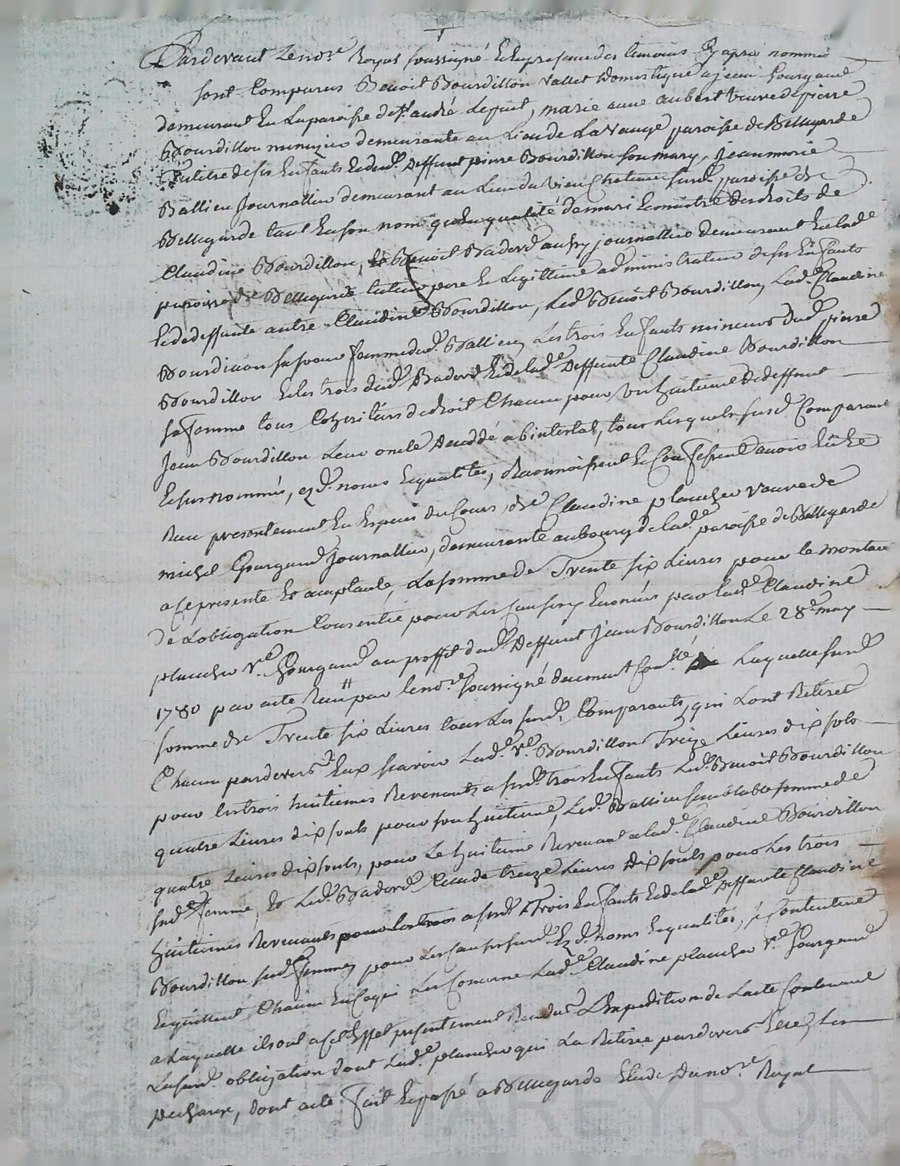 Pardevant Le no.re Royal soussigné Et En presence des temoins Cy apres nommés
sont Comparus Benoit Bourdillon vallet domestique a jean Gourgaud
demeurant En La paroisse de St. andré Le puit, marie anne aubert veuve de pierre
Bourdillon demeurante au Lieu de La vauzé paroisse de Bellegarde
tutrice de ses Enfants Et dud. deffunt pierre Bourdillon son mary, jean marie
Ballieu journallier demeurant au Lieu du vieu Chateau susd. paroisse de
Bellegarde tant En son nom qu'en qualité de mari Et maitre des droits de
Claudine Bourdillon, Et Benoit Badord aussy journallier demeurant En lad.
paroisse de Bellegarde tuteur pere Et Legittime administrateur de ses Enfants
Et de deffunte autre Claudine Bourdillon, Led. Benoit Bourdillon, Lad. Claudine
Bourdillon sa soeur femme dud. Ballieu, Les trois Enfants mineurs dud. pierre
Bourdillon Et Les trois dud. Badord Et de Lad. deffunte Claudine Bourdillon
sa femme tous Coheritiers de droit Chacun pour un huitieme de deffunt
Jean Bourdillon Leur oncle decedé abintestat, tous Lesquels susd. Comparant
Et susnommés, ezd. noms Et qualités, Reconnoissent Et Confessent avoir Eu Et
Reçu presentement En Especes du Cours, de Claudine plancher veuve de
michel Gourgaud journallier, demeurante au bourg de lad. paroisse de Bellegarde
a Ce presente Et acceptante, La somme de Trente six Livres pour le montant
de L'obligation Consentie pour Les Causes y Enoncées par lad. Claudine
plancher v.e Gourgaud au proffit dud. deffunt Jean Bourdillon Le 28.e may
1780 par acte Reçu par le no.re soussigné duement Con.lé Laquelle susd.
somme de Trente six Livres Lesd. Comparants, qui L'ont Retirée
Chacun pardevers Eux scavoir Lad. v.e Bourdillon Treize Livres dix sols
pour Les trois huitiemes Revenants a sesd. trois Enfants Led. Benoit Bourdillon
quatre Livres dix sols pour son huitieme, Led. Ballieu semblable somme de
quatre Livres dix sols, pour Le huitieme Revenant a lad. Claudine Bourdillon
sad. femme, Et Led. Badord Treize Livres Dix sols pour Les trois
huitiemes Revenants pour Les trois a sesd. Trois Enfants Et de lad. deffunte Claudine
Bourdillon sad. femme, pour Les Causes susd. Ezd. noms Et qualités, se Contentent
Et quittent Chacun En Ce qui Les Concerne Lad. Claudine plancher v.e Gourgaud
a Laquelle ils ont a Cet Effet presentement Rendu L'Expedition de L'acte Contenant
La susd. obligation dont Lad. plancher qui La Retirée pardevers Elle,
decharge, dont acte fait Et passé a Bellegarde Etude du no.re Royal